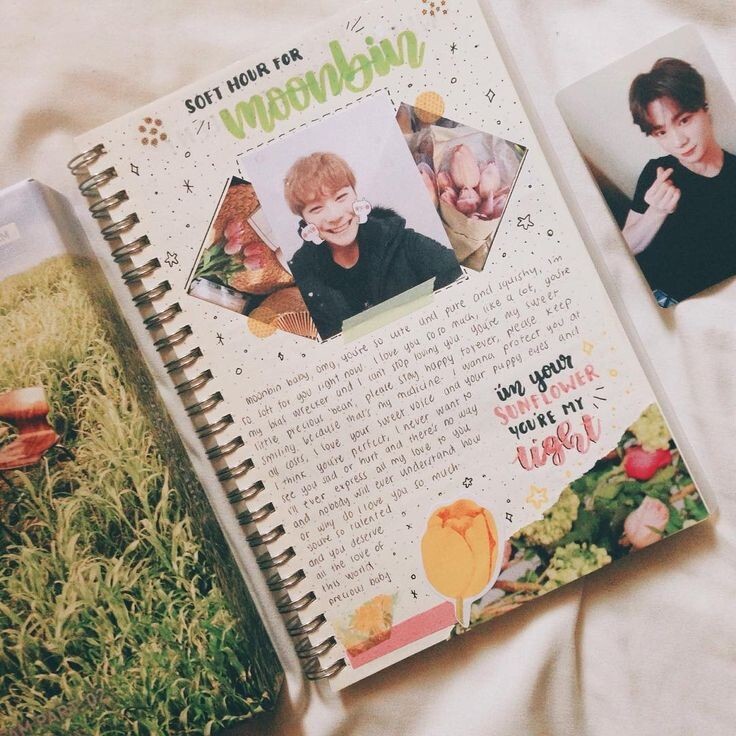 SOFT HOUR FOR
moonbin
moonbin baby omg, you're so cute and pure and squishy, i'm
so soft for you right now! I love you so so much, like a lot, you're
my bias wrecker and I can't stop loving you. you're my sweet
little precious 'bean', please stay happy forever, please keep
smiling, because that's my medicine. I wanna protect you at
all costs, I love your sweet voice and your puppy eyes and
think you're perfect, I never want to
see you sad or hurt and there's no way
I'll ever express all my love to you
and nobody will ever understand how
or why do I love you so much.
you're so talented
and you deserve
all the love of
this world.
precious baby
i'm your
SUNFLOWER
YOU'RE MY
light
PART.02